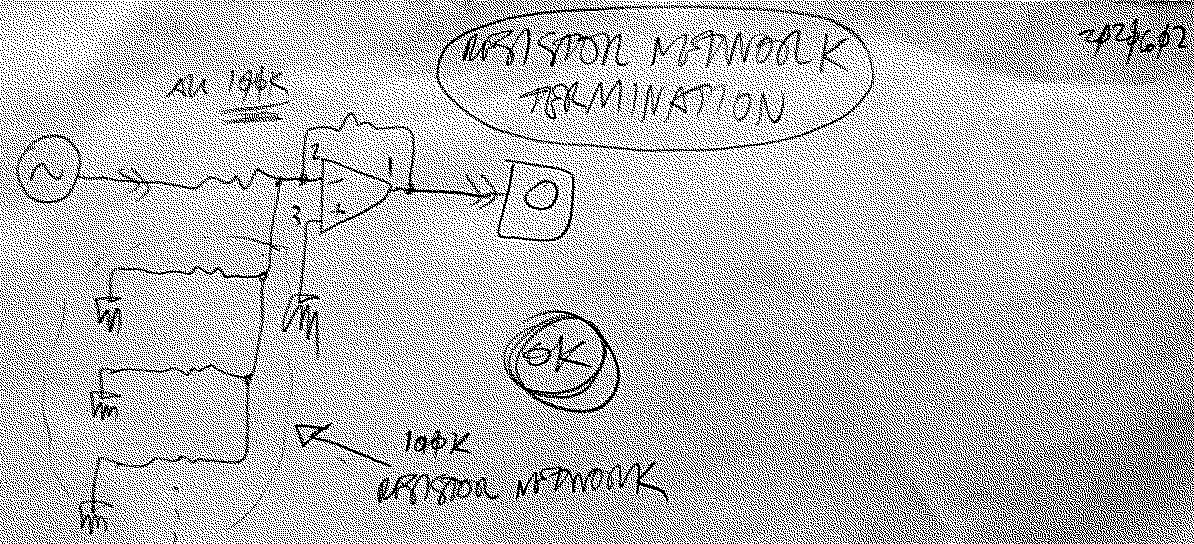 RESISTOR NETWORK
TERMINATION
ALL 100K
2
1
-
3
+
O
OK
100K
RESISTOR NETWORK